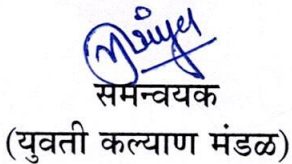 समन्वयक
(युवती कल्याण मंडळ)